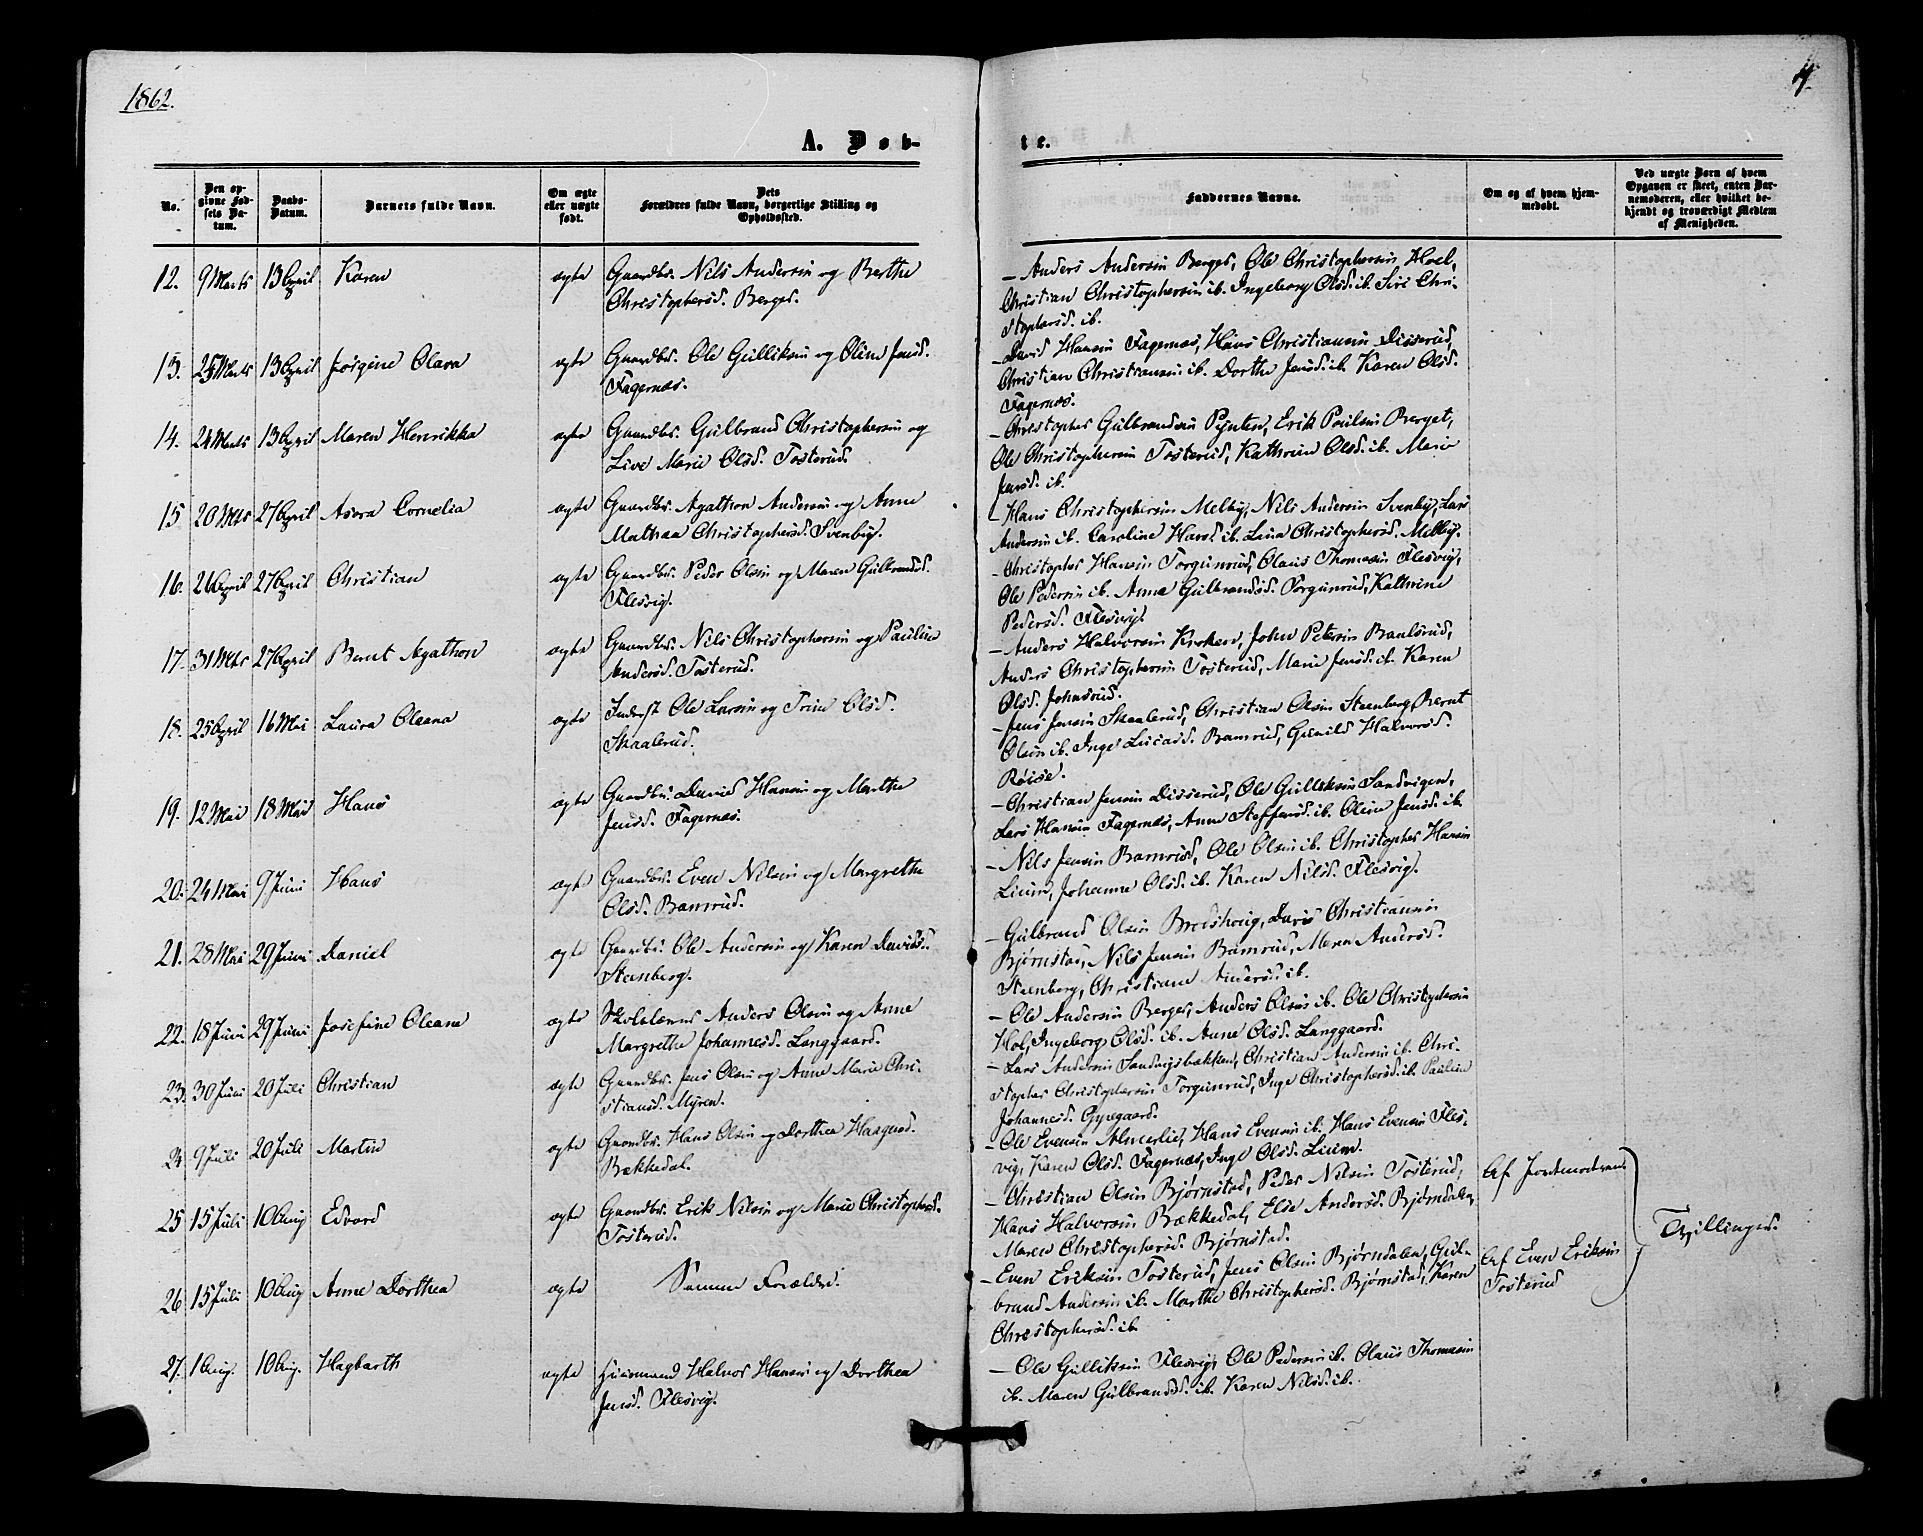 1862.
4.
A. Døb-
te.
No.
Den opgivne Fødsels Datum.
Daabs-Datum.
Barnets fulde Navn.
Om ægte eller uægte født.
Dets Forældres fulde Navn, borgerlige Stilling og Opholdssted.
Faddernes Navne.
Om og af hvem hjemmedøbt.
Ved uægte Børn af hvem Opgaven er skeet, enten Barnemoderen, eller hvilket bekjendt og troværdigt Medlem af Menigheden.
12. 9 Marts 13 April Karen ægte Gaardbr. Nils Andersen og Berthe
Christophersd. Berget.
– Anders Andersen Berget, Ole Christophersen Hoel,
Christian Christophersen ib. Ingeborg Olsd. ib. Siri Chri-
stophersd. ib.
13. 25 Marts 13 April Jørgine Olava ægte Gaardbr. Ole Gulliksen og Oline Jensd.
Fagernæs.
– David Hansen Fagernæs, Hans Christiansen Disserud,
Christian Christiansen ib. Dorthe Jensd. ib. Karen Olsd.
Fagernæs.
14. 24 Marts 13 April Maren Henrikka ægte Gaardbr. Gulbrand Christophersen og
Live Marie Olsd. Tosterud.
– Christopher Gulbrandsen Pynten, Erik Paulsen Berget,
Ole Christophersen Tosterud, Kathrine Olsd. ib. Marie
Jensd. ib.
15 20 Mts 27 April Asora Cornelia ægte Gaardbr. Agathon Andersen og Anne
Mathea Christophersd. Svenby.
– Hans Christophersen Melby, Nils Andersen Svenby, Lars
Andersen ib. Caroline Hansd. ib. Lena Christophersd. Melby.
16. 21 April 27 April Christian ægte Gaardbr. Peder Olsen og Maren Gulbrandsd.
Flesvig.
– Christopher Hansen Torgunrud, Olaus Thomasen Flesvig,
Ole Pedersen ib. Anne Gulbrandsd. Torgunrud, Kathrine
Pedersd. Flesvig.
17. 31 Mts 27 April Bernt Agathon ægte Gaardbr. Nils Christophersen og Pauline
Andersd. Tosterud.
– Anders Halvorsen Kroken, John Petersen Baalsrud,
Anders Christophersen Tosterud, Marie Jensd. ib. Karen
Olsd. Johnsrud.
18. 25 April 16 Mai Laura Oleana ægte Inderst Ole Larsen og Trine Olsd.
Skaalerud.
– Jens Jensen Skaalerud, Christian Olsen Steenberg, Bernt
Olsen ib. Inge Lucasd. Bamrud, Gunild Halvorsd.
Røise.
19. 12 Mai 18 Mai Hans ægte Gaardbr. David Hansen og Marthe
Jensd. Fagernæs.
– Christian Jensen Disserud, Ole Gulliksen Sandvigen,
Lars Hansen Fagernæs, Anne Steffensd. ib. Oline Jensd. ib.
20. 24 Mai 9 Juni Hans ægte Gaardbr. Even Nilsen og Margrethe
Olsd. Bamrud.
– Nils Jensen Bamrud, Ole Olsen ib. Christopher Hansen
Lium, Johanne Olsd. ib. Karen Nilsd. Flesvig.
21. 28 Mai 29 Juni Daniel ægte Gaardbr. Ole Andersen og Karen Davidsd.
Steenberg.
– Gulbrand Olsen Bredshoug, David Christiansen
Bjørnstad, Nils Jensen Bamrud, Maren Andersd.
Steenberg, Christiane Andersd. ib.
22. 18 Juni 29 Juni Josefine Oleana ægte Skolelærer Anders Olsen og Anne
Margrethe Johannesd. Langgaard.
– Ole Andersen Berget, Anders Olsen ib. Ole Christophersen
Hol, Ingeborg Olsd. ib. Anne Olsd. Langgaard.
23. 30 Juni 20 Juli Christian ægte Gaardbr. Jens Olsen og Anne Marie Chri-
stiansd. Myren.
– Lars Andersen Sandvigsbakken, Christian Andersen ib. Chri-
stopher Christophersen Torgunrud, Inge Christophersd. ib. Pauline
Johannesd. Gyngaard.
24 9 Juli 20 Juli Martin ægte Gaardbr. Hans Olsen og Dorthea Haagensd.
Bækkedal.
– Ole Evensen Almerlie, Hans Evensen ib. Hans Evensen Fles-
vig, Karen Olsd. Fagernæs, Inge Olsd. Lium.
25 15 Juli 10 Aug Edvard ægte Gaardbr. Erik Nilsen og Marie Christophersd.
Tosterud.
– Christian Olsen Bjørnstad, Peder Nilsen Tosterud,
Hans Halvorsen Bækkedal, Else Andersd. Bjørndalen,
Maren Christophersd. Bjørnstad.
Af Jordmoderen
26 15 Juli 10 Aug Anne Dorthea ægte Samme Forældre.
– Even Eriksen Tosterud, Jens Olsen Bjørndalen, Gul-
brand Andersen ib. Marthe Christophersd. Bjørnstad, Karen
Christophersd. ib.
Af Even Eriksen
Tosterud
Tvillinger.
27. 1 Aug. 10 Aug. Hagbarth ægte Huusmand Halvor Hansen og Dorthea
Jensd. Flesvig.
– Ole Gulliksen Flesvig, Ole Pedersen ib. Olaus Thomasen
ib. Maren Gulbrandsd. ib. Karen Nilsd. ib.